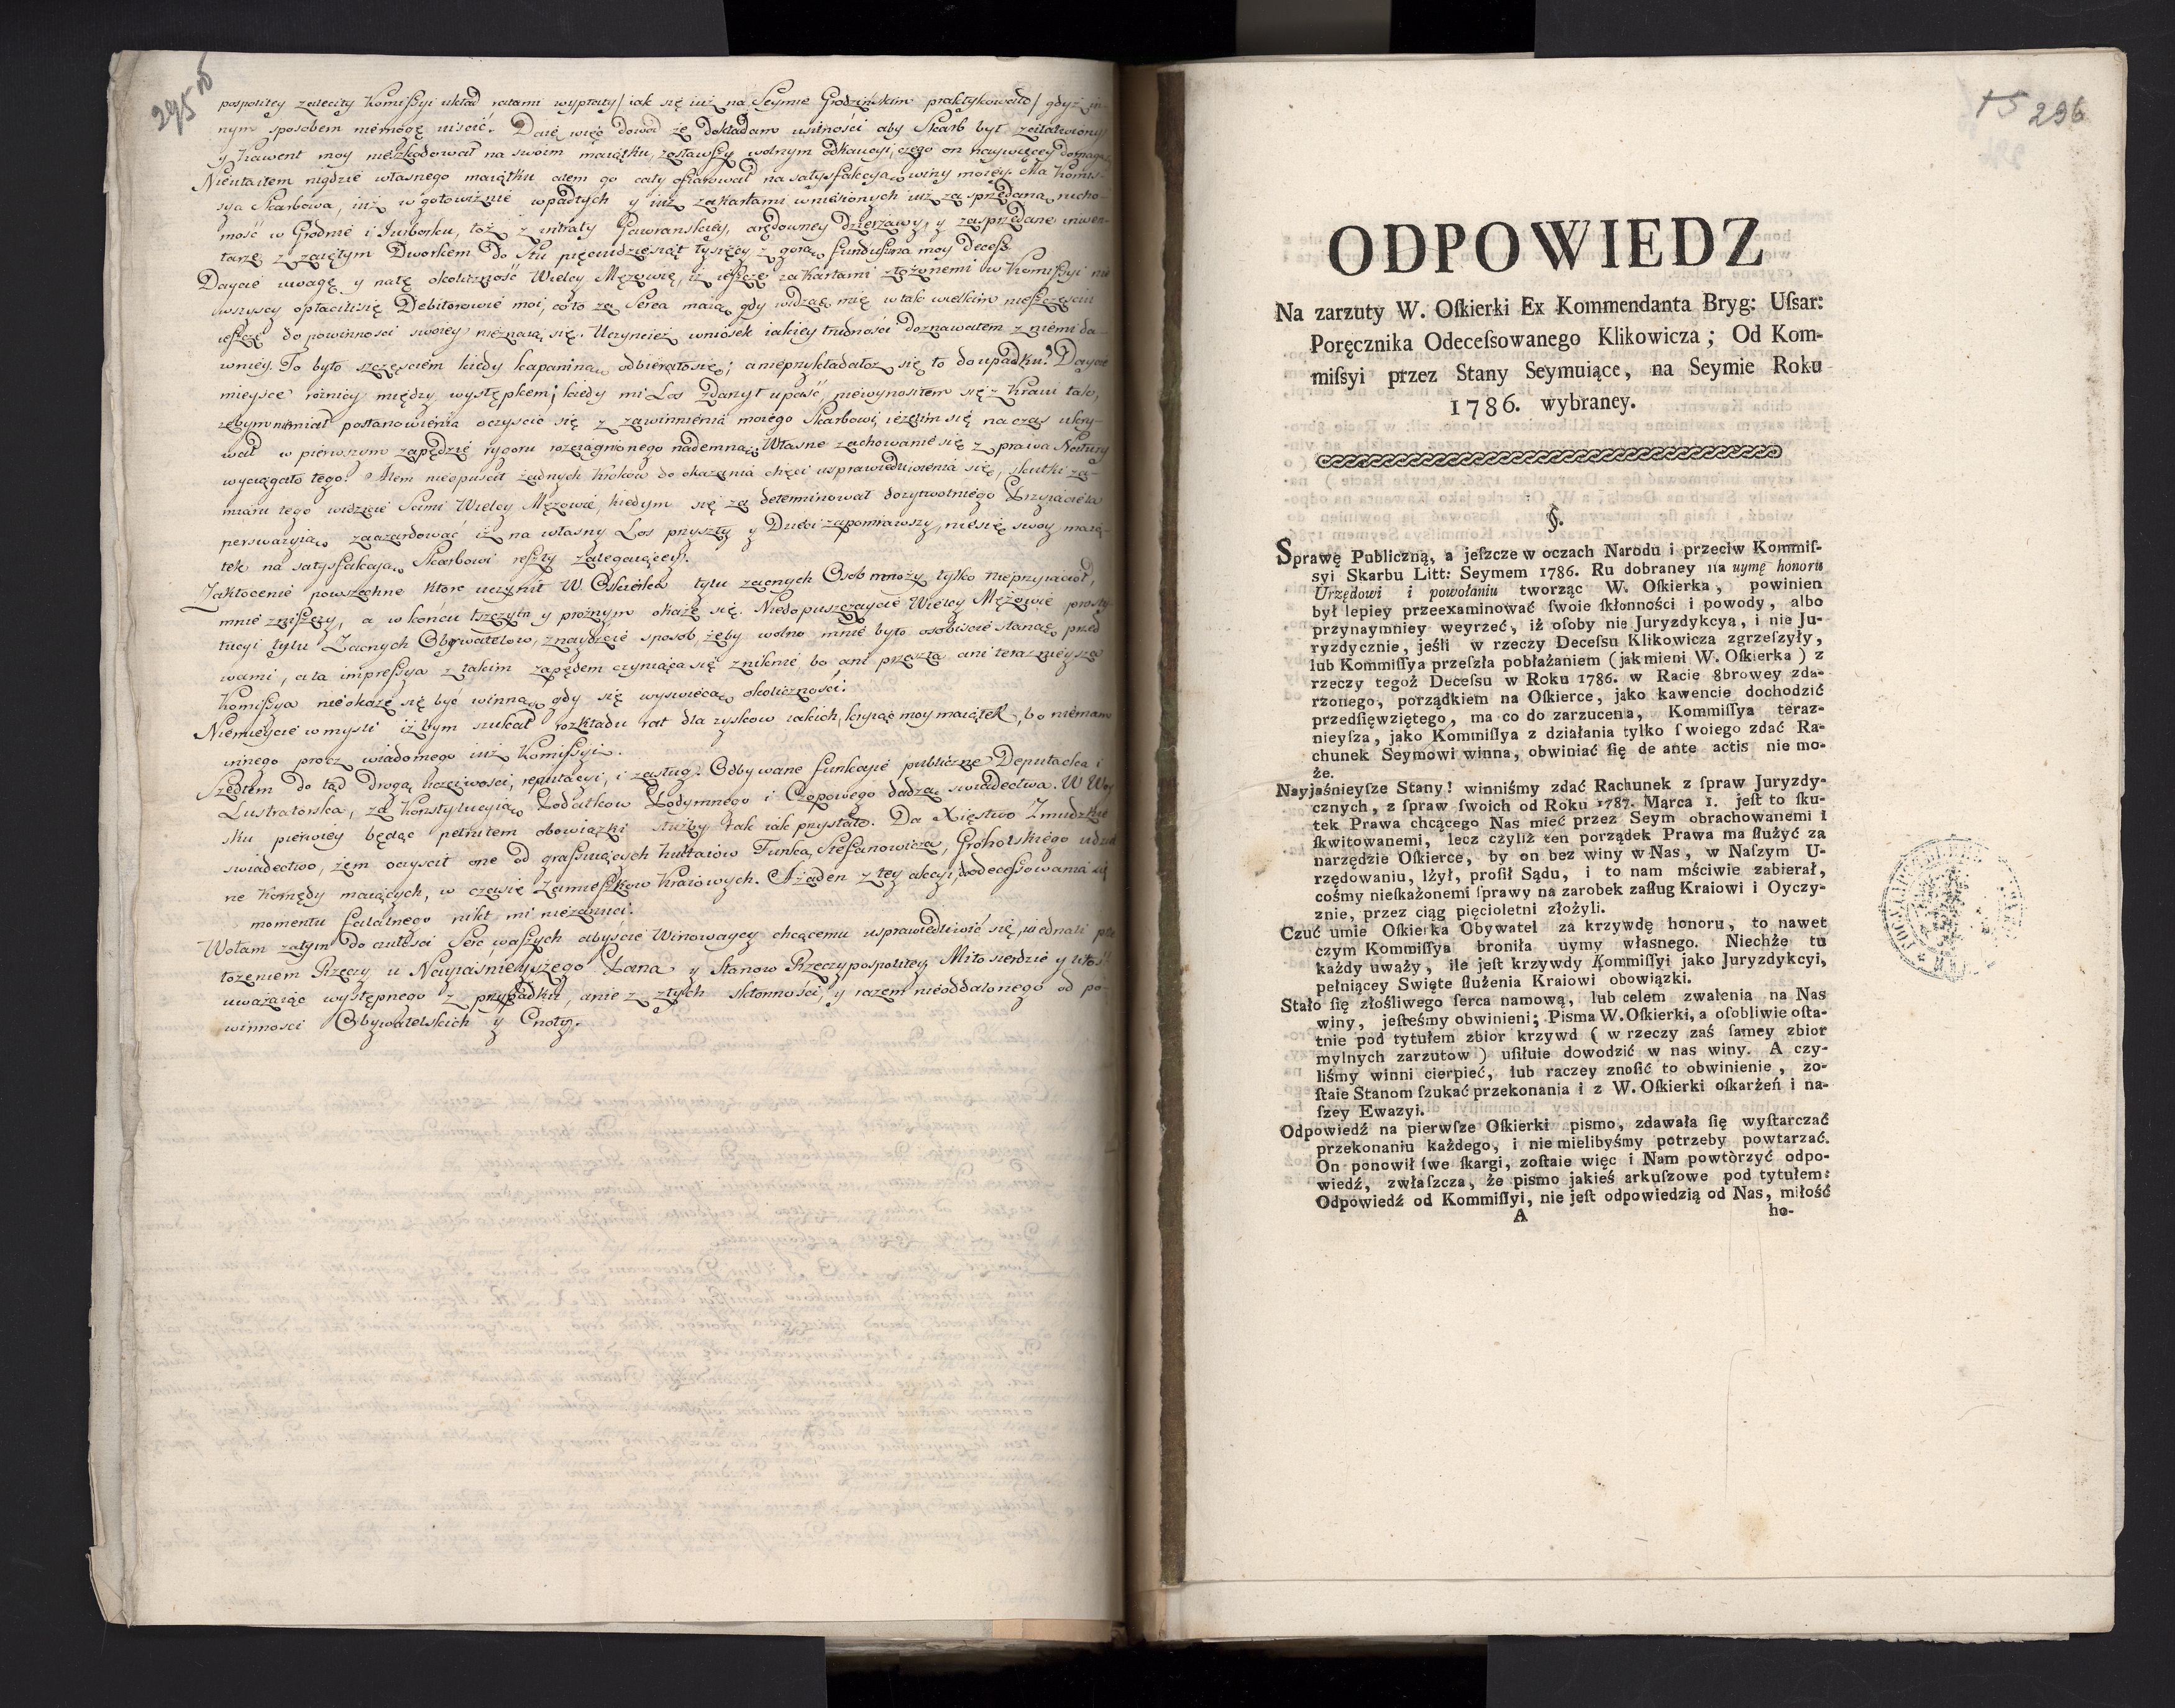 295
pospolitey zalecity Komissyi układ ratami wypłaty/ iak się iuż na Seymie Grodzińskim praktykowało/ gdyż in-
nym sposobem niemogę uiścić. Daię więc dowod że dokładam usilności aby Skarb był załatwiony
y Kawent moy nieszkodował na swoim maiątku, zostawszy wolnym od kaucyi, czego on naywięcey domaga
Nieutaiłem nigdzie własnego maiątku alem go cały ofiarował na satysfakcyą winy moiey. Ma Komis-
sya Skarbowa, iuż w gotowiźnie wpadłych y iuż zakartami wniesionych iuż za sprzedaną rucho-
mość w Grodnie i Jurborku, toż z intraty Gawrańskiey, arędowney dzierzawy, y zasprzedane inwen-
tarze z zaiętym Dworkiem do Stu pięciudziesiąt tysięcy z gorą funduszu na moy Decess.
Daycie uwagę y na tę okoliczność Wielcy Mężowie, iż ieszcze zakartami złożonemi w Komissyi nie
wszyscy opłacilisię Debitorowie moi, coto za Serca maią, gdy widząc mię w tak wielkim nieszczęściu
ieszcze do powinności swoiey nieznaią się. Uczyncież wniosek iakiey trudności doznawałem z niemi da-
wniey. To było szczęściem kiedy kapanina odbierałosię; a nieprzykładałoż się to do upadku? Daycie
mieysce roźnicy między występkem; kiedy mi Los zdarzył upaść, niewynosiłem się z Kraiu tak,
żebym niemiał postanowienia oczyścić się z zawinnienia moiego Skarbowi, ieżelim się na czas ukry-
wał w pierwszym zapędzie rygoru rozciągnionego nademną. Własne zachowanie się z prawa Natury
wyciągało tego. Alem nieopuścił żadnych krokow do okazania chęci usprawiedliwienia się, skutki za-
miaru tego widzicie Sami Wielcy Mężowie, kiedym się za determinował dożywotniego Przyiaciela
perswazyią zaazardować iż na własny Los przyszły y Dzieci zapomniawszy, niesię swoy maią-
tek na satysfakcyą Skarbowi reszty zalegaiącey.
Zakłocenie powszechne ktore uczynił W Oskierka tylu zacnych Osob mnoży tylko nieprzyiacioł,
mnie zniszczy, a w końcu tszczym y prożnym okaże się. Niedopuszczaycie Wielcy Mężowie prosty-
tucyi tylu Zacnych Obywatelow, znaydziecie sposob, żeby wolno mnie było osobiście stanąć przed
wami, a ta impressya z takim zapędem czyniąca się zniknie, bo ani przeszła ani teraznieysza
Komissya nieokaże się być winną gdy się wyswiecą okoliczności.
Niemieycie w mysli iżbym szukał rozkładu rat dla zyskow iakich, kryiąc moy maiątek, bo niemam
innego procz wiadomego iuż Komissyi.
Szedłem do tąd drogą uczciwości, reputacyi, i zasług. Odbywane funkcyie publiczne Deputacka i
Lustratorska, za Konstytucyią Podatkow Podymnego i Czopowego dadzą świadectwa. W Woy
sku pierwiey będąc pełniłem obowiązki służby tak iak przystało. Da Xięstwo Zmudzkie
swiadectwo, żem oczyścił one od grassuiących hultaiow Funka, Stefanowicza, Grohotskiego
ne Komędy maiących, w czasie Zamieszkow Kraiowych. A żaden z tey akcyi, do decessowania się
momentu fatalnego nikt mi niezarzuci.
Wołam zatym do czułości Serc waszych abyście Winowaycy chcącemu usprawiedliwić się, iednali prze
łożeniem Rzeczy u Nayiaśnieyszego Pana y Stanow Rzeczypospolitey, Miłosierdzie y litość
uważaiąc występnego z przypadku, anie z złych skłonności, y razem nieoddalonego od po-
winności Obywatelskich y Cnoty.
15 296
ODPOWIEDZ
Na zarzuty W. Oſkierki Ex Kommendanta Bryg: Uſsar:
Poręcznika Odeceſsowanego Klikowicza; Od Kom-
miſsyi przez Stany Seymuiące, na Seymie Roku
1786. wybraney.
§.
Sprawę Publiczną, a jeſzcze w oczach Narodu i przeciw Kommiſ-
syi Skarbu Litt: Seymem 1786. Ru dobraney na uymę honoru
Urzędowi i powołaniu tworząc W. Oſkierka, powinien
był lepiey przeexaminować ſwoie ſkłonności i powody, albo
przynaymniey weyrzeć, iż oſoby nie Juryzdykcya, i nie Ju-
ryzdycznie, jeśli w rzeczy Deceſsu Klikowicza zgrzeſzyły,
lub Kommiſſya przeſzła pobłażaniem (jak mieni W. Oſkierka) z
rzeczy tegoż Deceſsu w Roku 1786. w Racie 8browey zda-
rzonego, porządkiem na Oſkierce, jako kawencie dochodzić
przedſięwziętego, ma co do zarzucenia, Kommiſſya teraz-
nieyſza, jako Kommiſſya z działania tylko ſwoiego zdać Ra-
chunek Seymowi winna, obwiniać ſię de ante actis nie mo-
że.
Nayjaśnieyſze Stany! winniśmy zdać Rachunek z ſpraw Juryzdy-
cznych, z ſpraw ſwoich od Roku 1787. Marca 1. jeſt to ſku-
tek Prawa chcącego Nas mieć przez Seym obrachowanemi i
ſkwitowanemi, lecz czyliż ten porządek Prawa ma ſłużyć za
narzędzie Oſkierce, by on bez winy w Nas, w Naſzym U-
rzędowaniu, lżył, proſił Sądu, i to nam mściwie zabierał,
cośmy nieſkażonemi ſprawy na zarobek zaſług Kraiowi i Oyczy-
znie, przez ciąg pięcioletni złożyli.
Czuć umie Oſkierka Obywatel za krzywdę honoru, to nawet
czym Kommiſſya broniła uymy własnego. Niechże tu
każdy uważy, ile jeſt krzywdy Kommiſſyi jako Juryzdykcyi,
pełniącey Swięte ſłużenia Kraiowi obowiązki.
Stało ſię złośliwego ſerca namową, lub celem zwalenia na Nas
winy, jeſteśmy obwinieni; Pisma W. Oſkierki, a oſobliwie oſta-
tnie pod tytułem zbior krzywd (w rzeczy zaś ſamey zbior
mylnych zarzutow) uſiłuie dowodzić w nas winy. A czy-
liśmy winni cierpieć, lub raczey znoſić to obwinienie, zo-
ſtaie Stanom ſzukać przekonania i z W. Oſkierki oſkarżeń i na-
ſzey Ewazyi.
Odpowiedź na pierwſze Oſkierki pismo, zdawała ſię wyſtarczać
przekonaniu każdego, i nie mielibyśmy potrzeby powtarzać.
On ponowił ſwe ſkargi, zoſtaie więc i Nam powtòrzyć odpo-
wiedź, zwłaſzcza, że pismo jakieś arkuſzowe pod tytułem:
Odpowiedź od Kommiſſyi, nie jeſt odpowiedzią od Nas, miłość
A ho-